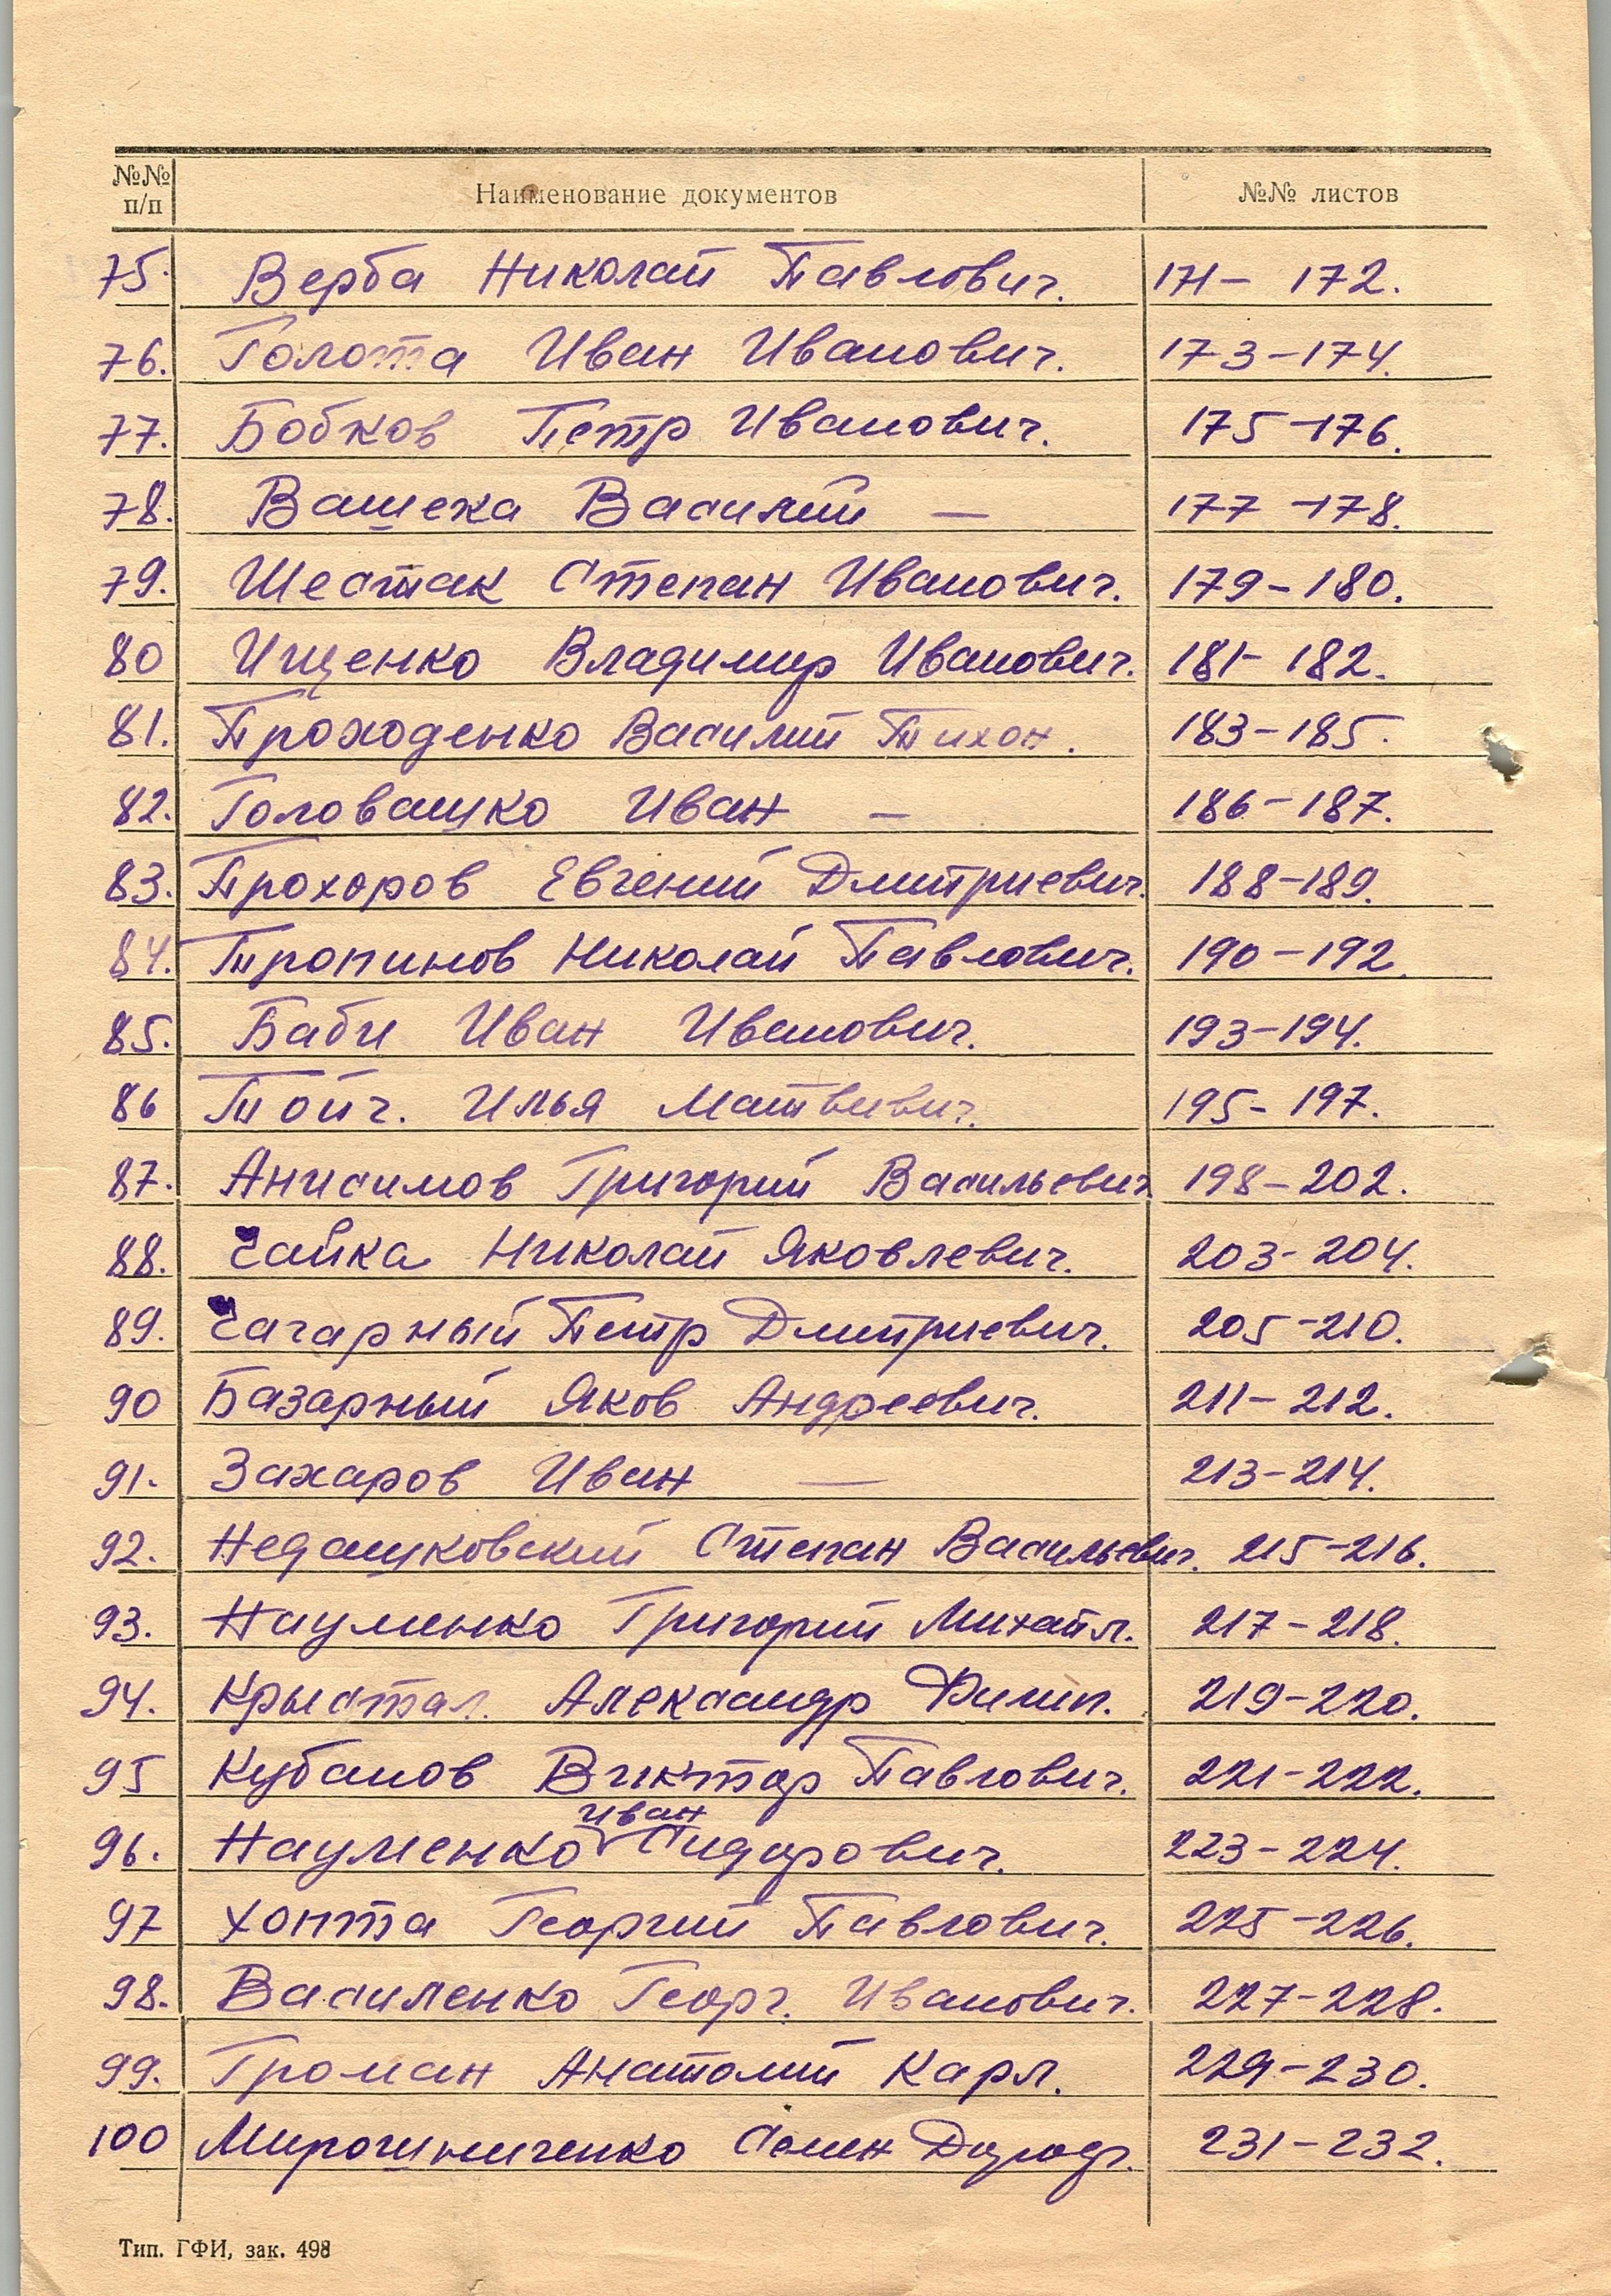 №№ п/п Наименование документов №№ листов
75. Верба Николай Павлович. 171- 172.
76. Голота Иван Иванович. 173-174.
77. Бобков Петр Иванович. 175-176.
78. Вашека Василий — 177-178.
79. Шестак Степан Иванович. 179-180.
80 Ищенко Владимир Иванович. 181- 182.
81. Проходенко Василий Тихон. 183-185.
82. Головашко Иван — 186-187.
83. Прохоров Евгений Дмитриевич. 188-189.
84. Тропинов Николай Павлович. 190-192.
85. Баби Иван Иванович. 193-194.
86 Тойч. Илья Матвиевич. 195- 197.
87. Анисимов Григорий Васильевич 198-202.
88. Чайка Николай Яковлевич. 203-204.
89. Чагарный Петр Дмитриевич. 205-210.
90 Базарный Яков Андреевич. 211-212.
91. Захаров Иван — 213-214.
92. Недашковский Степан Васильевич. 215-216.
93. Науменко Григорий Михайл. 217-218.
94. Крыстал. Александр Филип. 219-220.
95 Кубанов Виктор Павлович. 221-222.
96. Науменко Иван Сидорович. 223-224.
97 Хопта Георгий Павлович. 225-226.
98. Василенко Георг. Иванович. 227-228.
99. Громан Анатолий Карл. 229-230.
100 Мирошниченко Семен Дороф. 231-232.
Тип. ГФИ, зак. 498